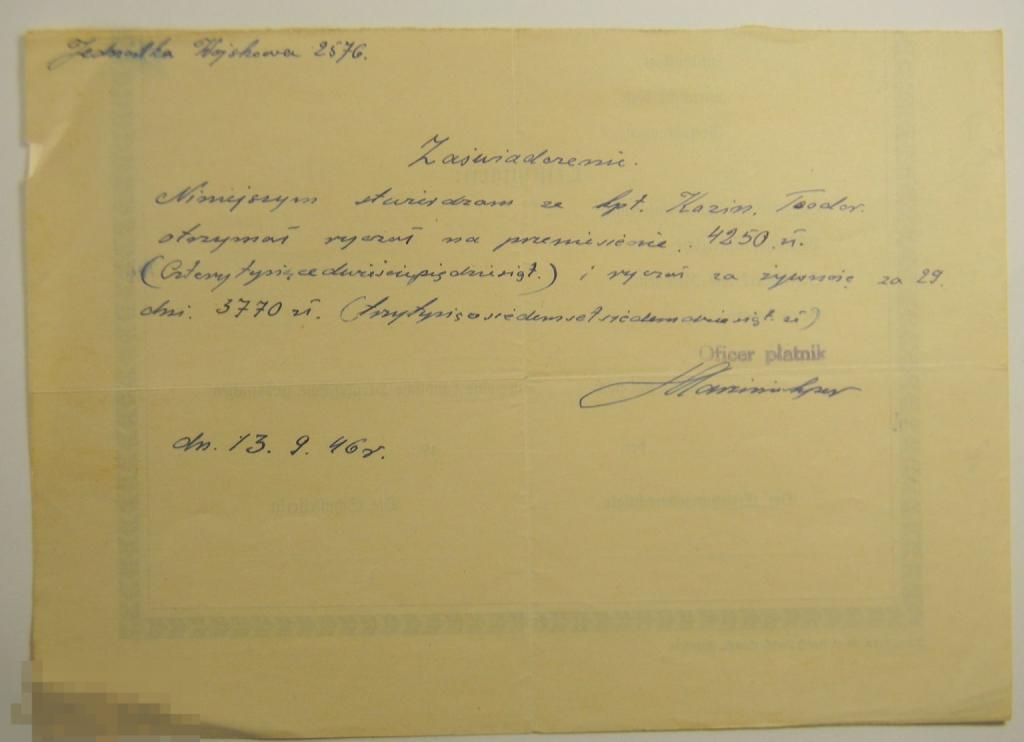 Jednostka Wojskowa 2576.
Zaświadczenie.
Niniejszym stwierdzam ze kpt. Kazin. Teodor.
otrzymał ryczał na przeniesienie. 4250 zł.
(Czterytysiącedwieściepiędziesiąt.) i ryczał za żywność za 29.
dni. 3770 zł. (trzytysiącesiedemsetsiedemdziesiąt zł)
Oficer płatnik
dn. 13. 9. 46 r.